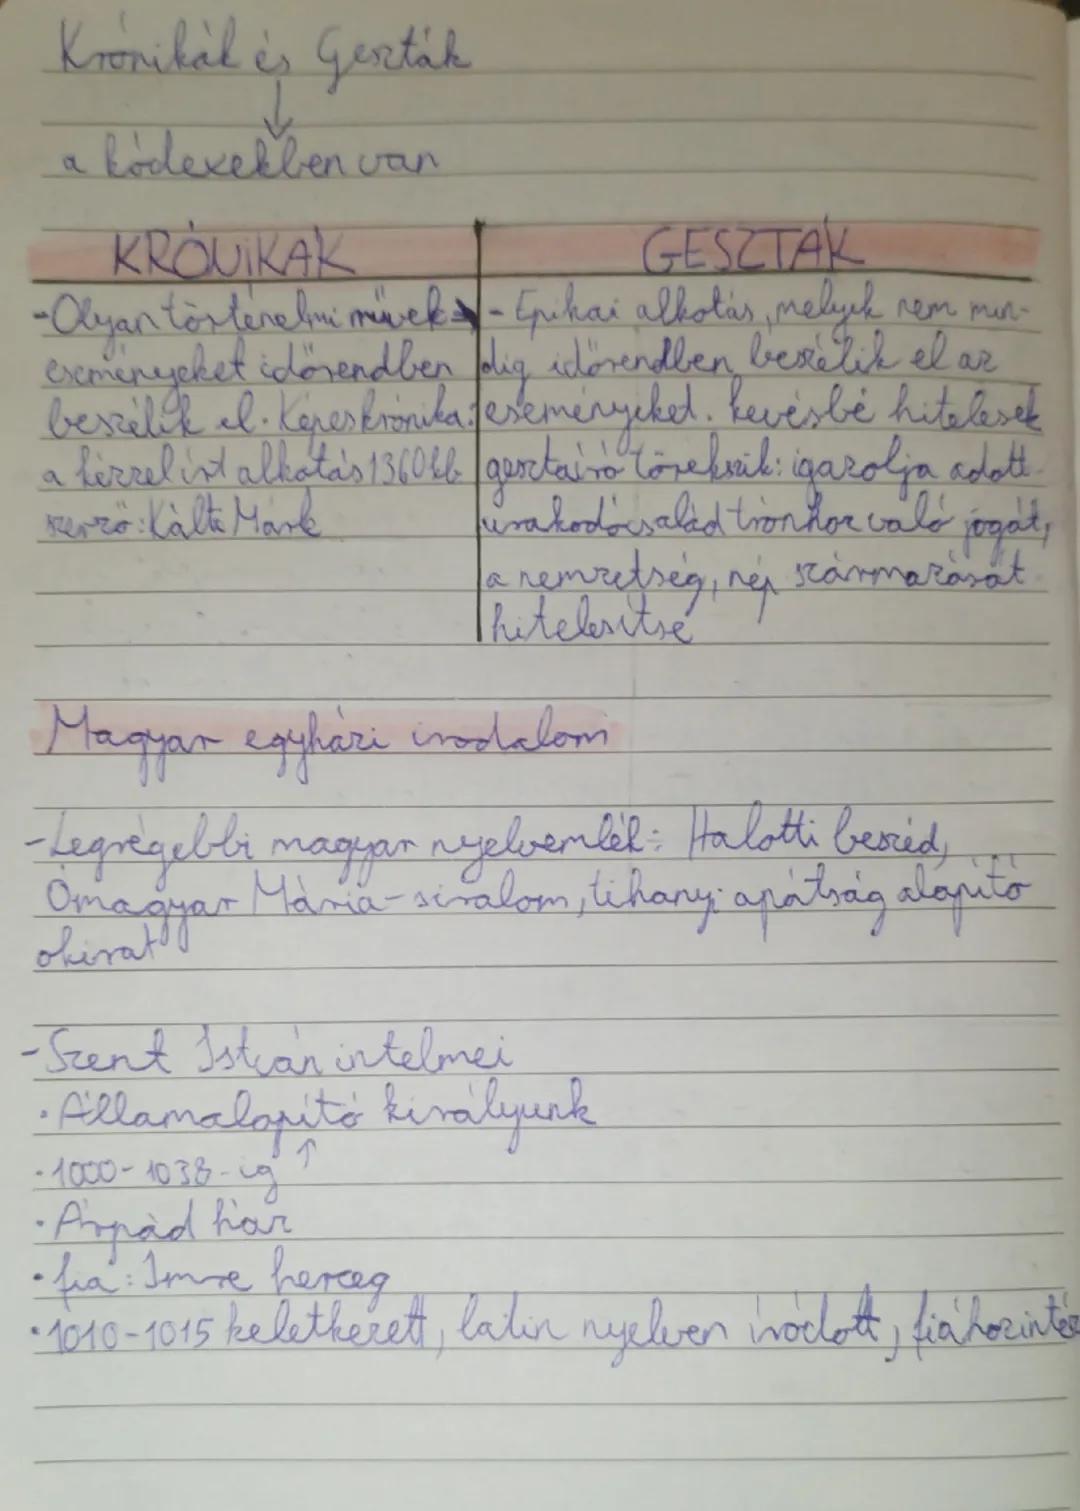 Krónikák és Geszták
↓
a kódexekben van
KRÓNIKÁK
-Olyan történelmi művek
eseményeket időrendben
beszélik el. Képeskrónika:
a kézzel írt alkotás 1360 kk
szerző: Kálti Márk
GESZTÁK
- Epikai alkotás, melyek nem min-
dig időrendben beszélik el az
eseményeket. kevésbé hitelesek
gesztaíró törekszik: igazolja adott
uralkodócsalád trónhoz való jogát,
a nemzetség, nép származását
hitelesítse
Magyar egyházi irodalom
-Legrégebbi magyar nyelvemlék: Halotti beszéd,
Ómagyar Mária-siralom, tihanyi apátság alapító
okirat
-Szent István intelmei
• Államalapító királyunk
• 1000-1038-ig ↑
• Árpád ház
• fia: Imre herceg
• 1010-1015 keletkezett, latin nyelven íródott, fiához intéz